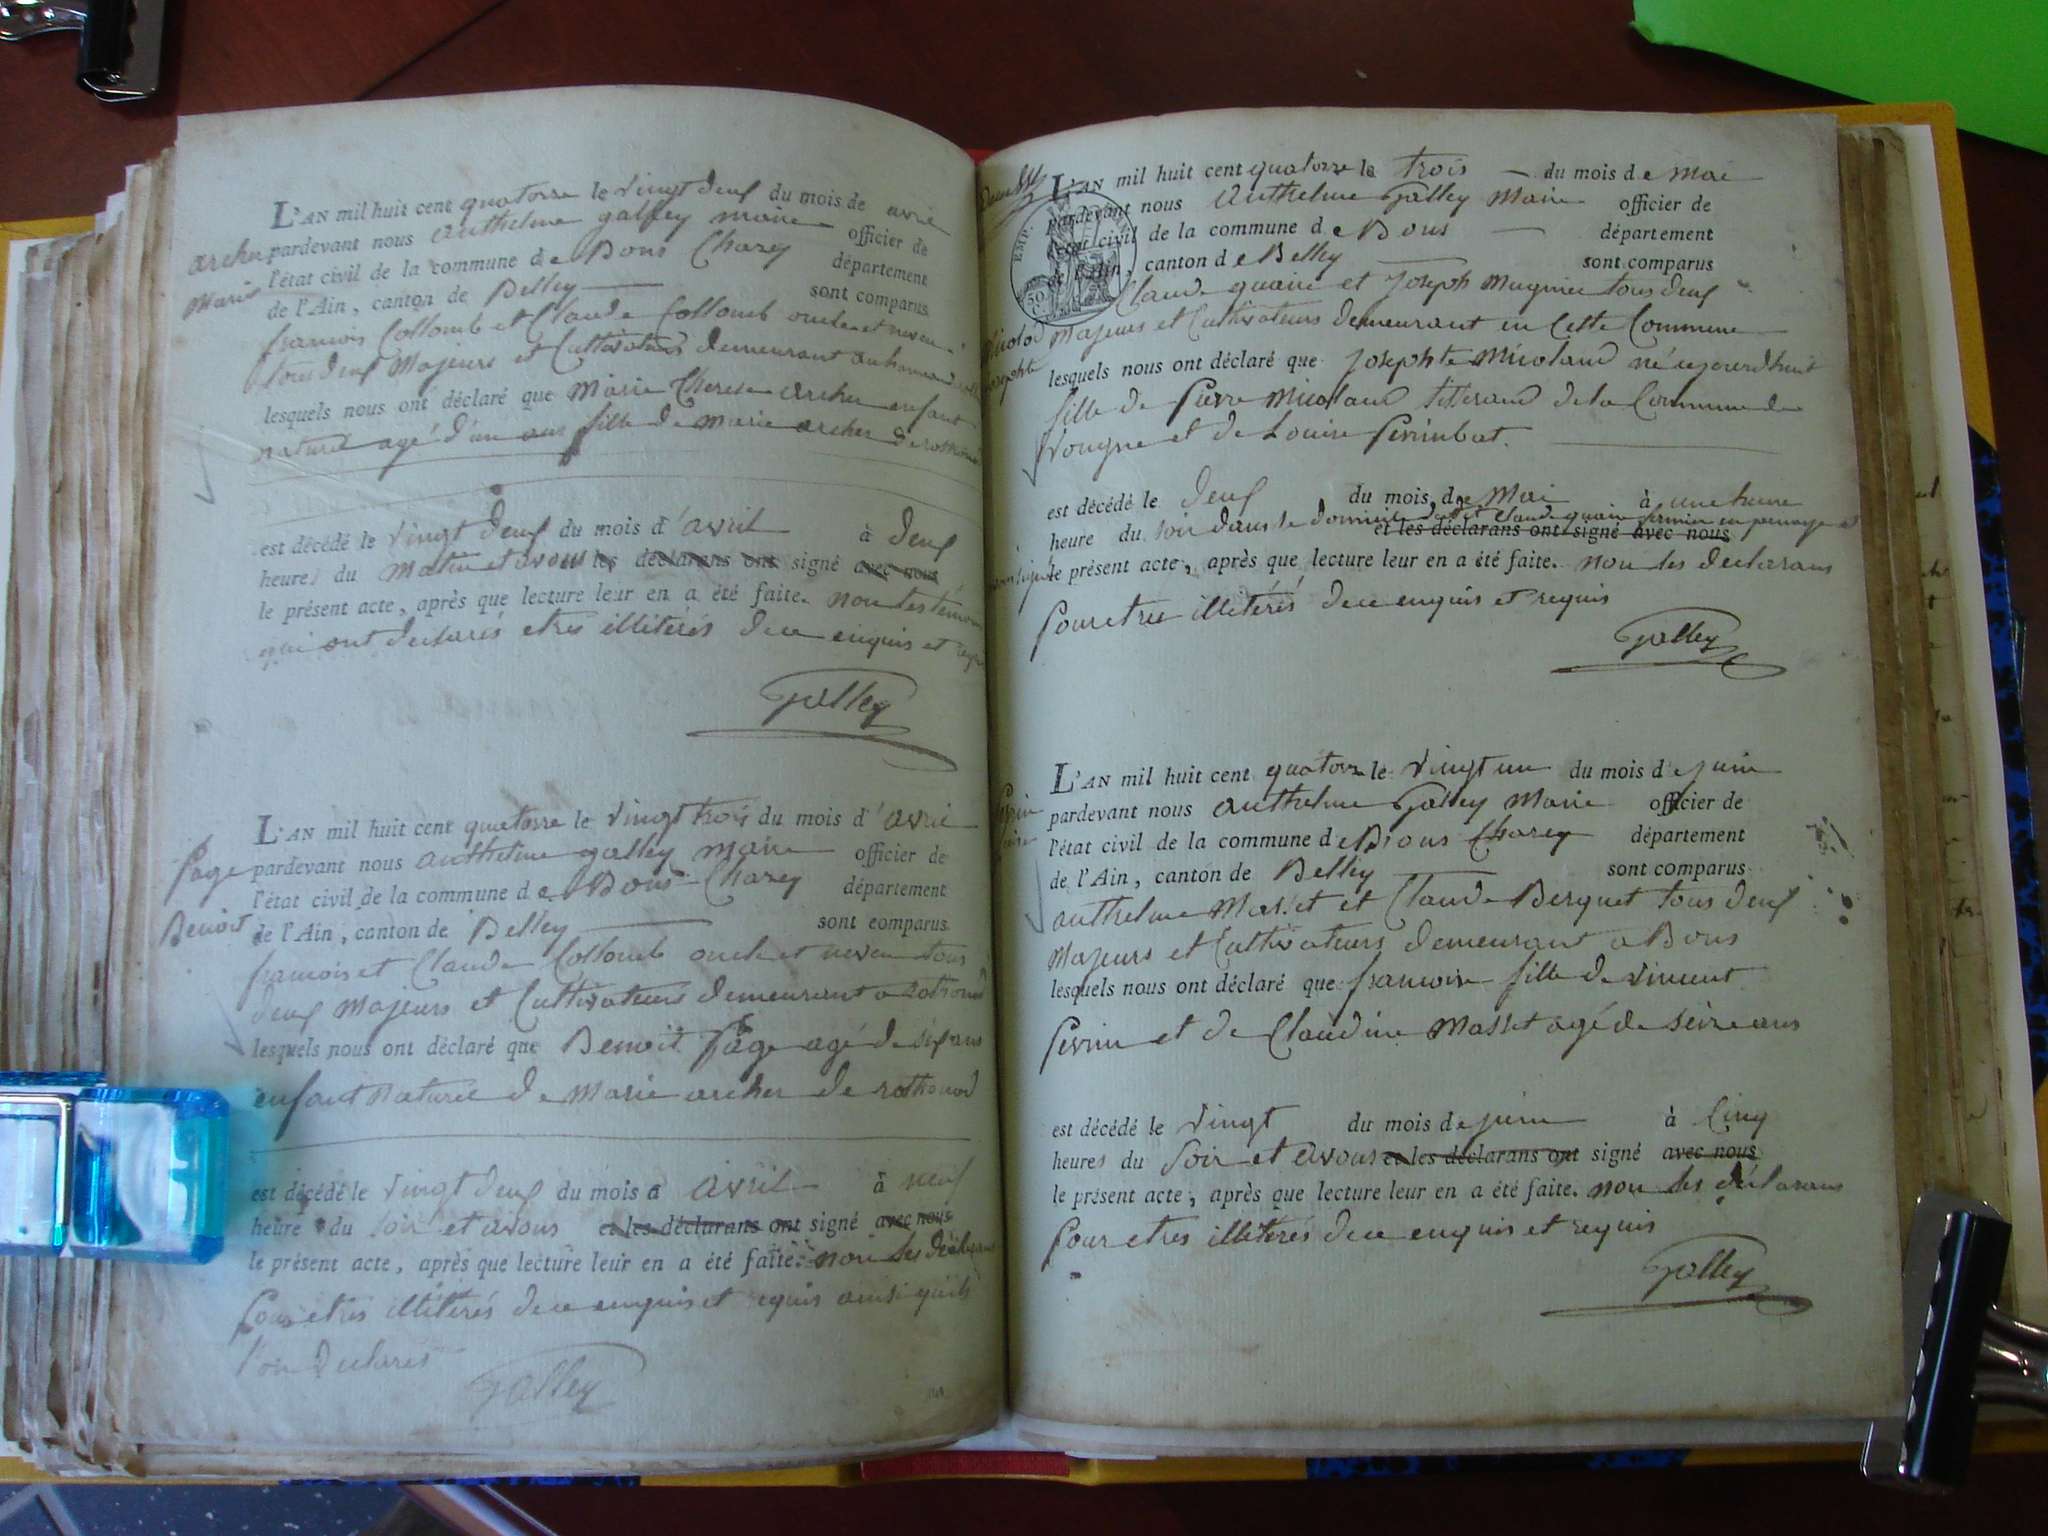 L'AN mil huit cent quatorze le vingt deux du mois de avril
archer pardevant nous anthelme galley maire officier de
l'état civil de la commune de Bons Chazey département
Marie de l'Ain, canton de Belley sont comparus
francois Collomb et Claude Collomb oncle et neveu
tous deux Majeurs et Cultivateurs demeurant au hameau
lesquels nous ont déclaré que Marie Therese archer enfant
naturel agé d'un ans fille de Marie archer de rothonod
est décédé le vingt deux du mois d'avril à deux
heures du matin et avons les déclarans ont signé avec nous
le présent acte, après que lecture leur en a été faite. non les témoins
qui ont declarés etres illiterés de ce enquis et requis
Galley
L'AN mil huit cent quatorze le vingt trois du mois d'avril
Page pardevant nous anthelme galley maire officier de
l'état civil de la commune de Bons Chazey département
Benoit de l'Ain, canton de Belley sont comparus
francois et Claude Collomb oncle et neveu tous
deux Majeurs et Cultivateurs demeurant a rothonod
lesquels nous ont déclaré que Benoit Page agé de six ans
enfant naturel de Marie archer de rothonod
est décédé le vingt deux du mois d avril à neuf
heure du soir et avons et les déclarans ont signé avec nous
le présent acte, après que lecture leur en a été faite. non les déclarans
pour etres illiterés de ce enquis et requis ainsi qu'ils
l'on declarés
Galley
L'AN mil huit cent quatorze le trois du mois de mai
pardevant nous Anthelme Galley Maire officier de
l'état civil de la commune de Bons département
EMP.
de l'Ain, canton de Belley sont comparus
50 C.
Claude quain et Joseph Mugnier tous deux
Majeurs et Cultivateurs demeurant en cette Commune
lesquels nous ont déclaré que Josephte Micolaud né cejourd'huit
fille de Pierre Micolaud titterand de la Commune de
Vougne et de Louise Perrinbat.
est décédé le deux du mois de Mai à une heure
heure du soir dans le domicile dudit Claude quain fermier en
et les déclarans ont signé avec nous
le présent acte, après que lecture leur en a été faite. non les declarans
Pour etres illitérés de ce enquis et requis
Galley
L'AN mil huit cent quatorze le vingt un du mois de juin
pardevant nous anthelme Galley Maire officier de
l'état civil de la commune de Bons Chazey département
de l'Ain, canton de Belley sont comparus
anthelme Masset et Claude Berquet tous deux
Majeurs et Cultivateurs demeurant a Bons
lesquels nous ont déclaré que francoise fille de vincent
Perrin et de Claudine Masset agé de seize ans
est décédé le vingt du mois de juin à Cinq
heures du soir et avons et les déclarans ont signé avec nous
le présent acte, après que lecture leur en a été faite. non les déclarans
Pour etres illiterés de ce enquis et requis
Galley